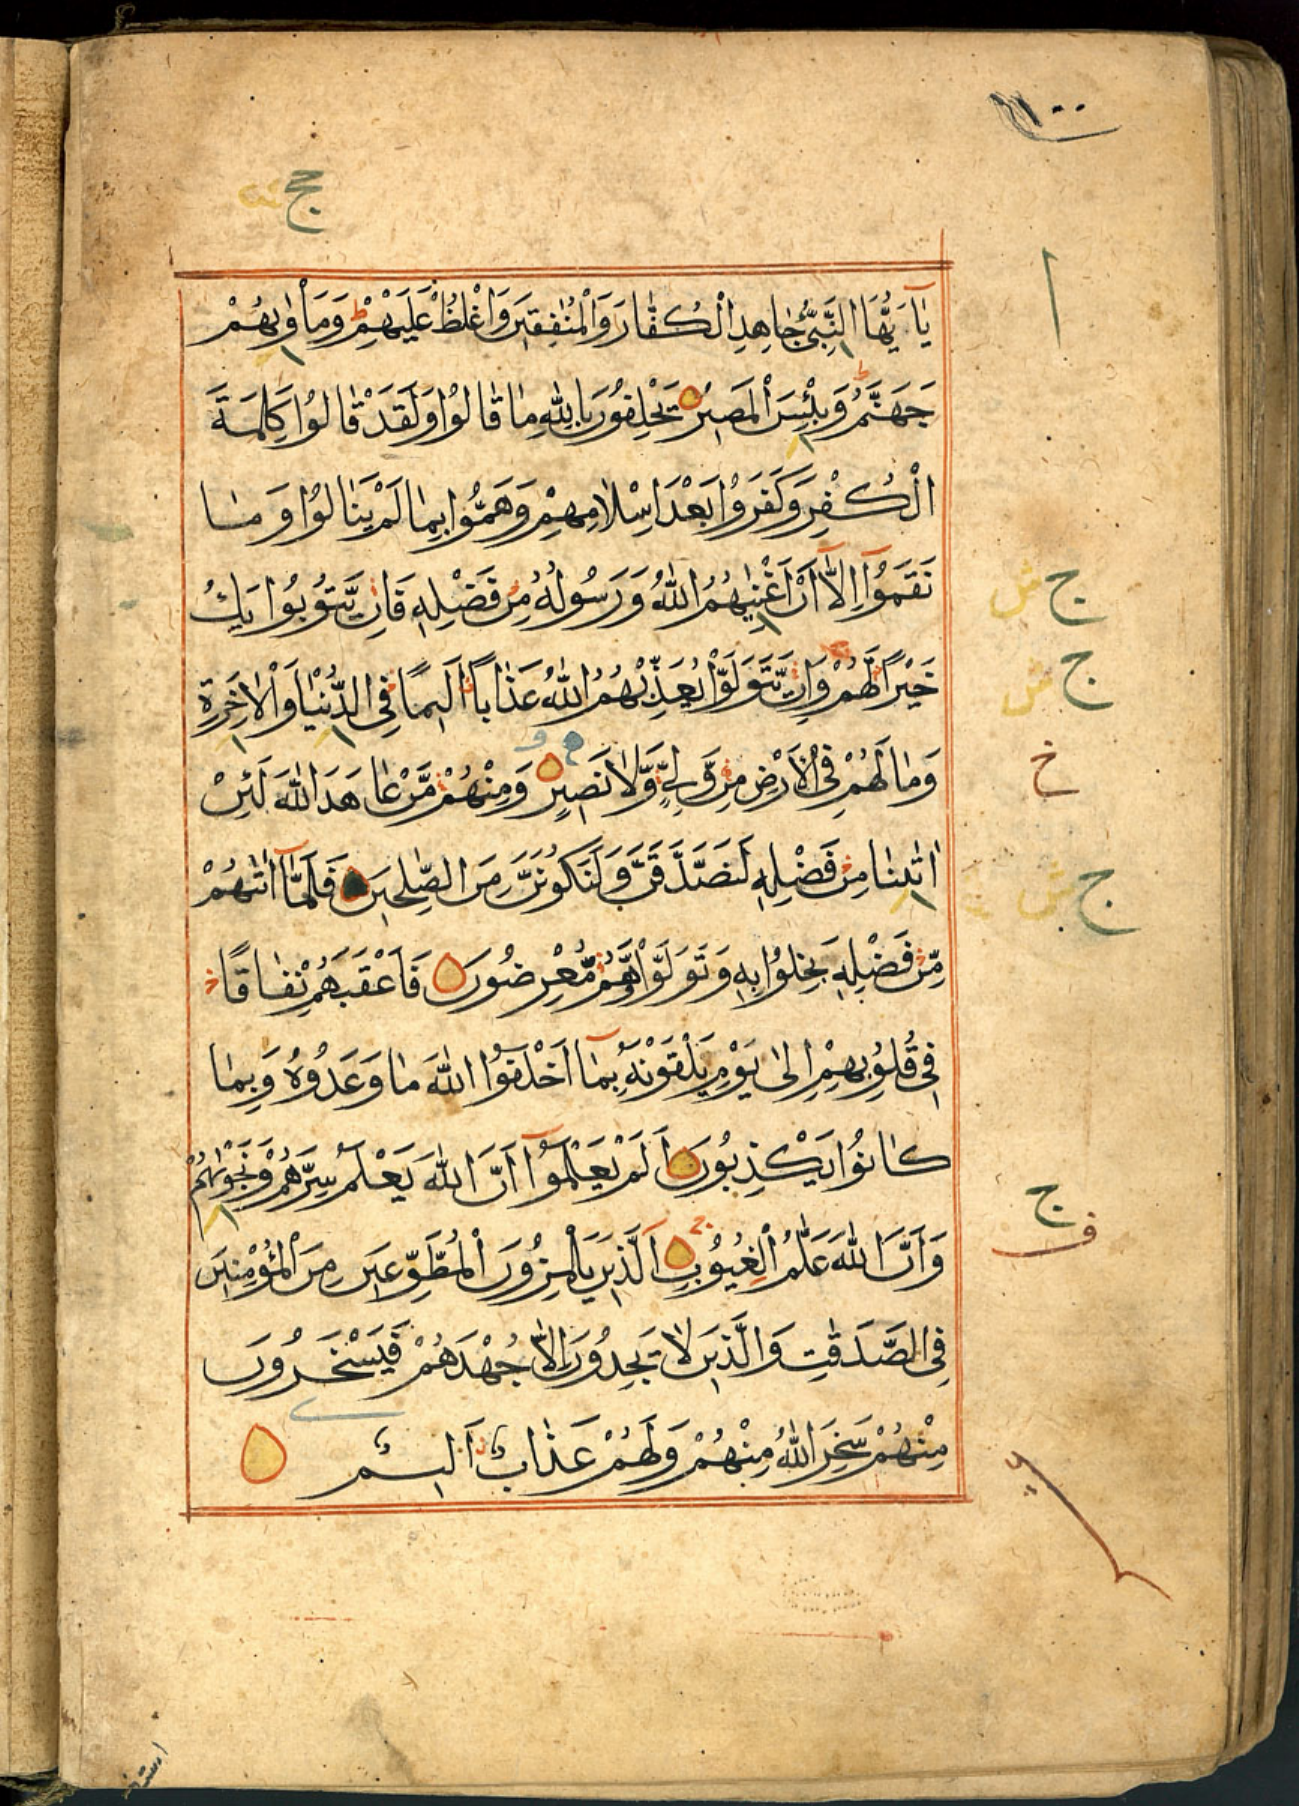 يٰٓاَيُّهَا النَّبِىُّ جَاهِدِ الْكُفَّارَ وَالْمُنٰفِقِينَ وَاغْلُظْ عَلَيْهِمْ وَمَاْوٰىهُمْ
جَهَنَّمُ وَبِئْسَ الْمَصِيرُ يَحْلِفُونَ بِاللّٰهِ مَا قَالُوا وَلَقَدْ قَالُوا كَلِمَةَ
الْكُفْرِ وَكَفَرُوا بَعْدَ اِسْلَامِهِمْ وَهَمُّوا بِمَا لَمْ يَنَالُوا وَمَا
نَقَمُوٓا اِلَّٓا اَنْ اَغْنٰىهُمُ اللّٰهُ وَرَسُولُهُ مِنْ فَضْلِهِ فَاِنْ يَّتُوبُوا يَكُ
خَيْرًا لَّهُمْ وَاِنْ يَّتَوَلَّوْا يُعَذِّبْهُمُ اللّٰهُ عَذَابًا اَلِيمًا فِى الدُّنْيَا وَالْاٰخِرَةِ
وَمَا لَهُمْ فِى الْاَرْضِ مِنْ وَّلِىٍّ وَّلَا نَصِيرٍ وَمِنْهُمْ مَّنْ عَاهَدَ اللّٰهَ لَئِنْ
اٰتٰىنَا مِنْ فَضْلِهِ لَنَصَّدَّقَنَّ وَلَنَكُونَنَّ مِنَ الصّٰلِحِينَ فَلَمَّٓا اٰتٰىهُمْ
مِّنْ فَضْلِهِ بَخِلُوا بِهِ وَتَوَلَّوْا وَّهُمْ مُّعْرِضُونَ فَاَعْقَبَهُمْ نِفَاقًا
فِى قُلُوبِهِمْ اِلٰى يَوْمِ يَلْقَوْنَهُ بِمَٓا اَخْلَفُوا اللّٰهَ مَا وَعَدُوهُ وَبِمَا
كَانُوا يَكْذِبُونَ اَلَمْ يَعْلَمُوٓا اَنَّ اللّٰهَ يَعْلَمُ سِرَّهُمْ وَنَجْوٰىهُمْ
وَاَنَّ اللّٰهَ عَلَّٰمُ الْغُيُوبِ اَلَّذِينَ يَلْمِزُونَ الْمُطَّوِّعِينَ مِنَ الْمُؤْمِنِينَ
فِى الصَّدَقٰتِ وَالَّذِينَ لَا يَجِدُونَ اِلَّا جُهْدَهُمْ فَيَسْخَرُونَ
مِنْهُمْ سَخِرَ اللّٰهُ مِنْهُمْ وَلَهُمْ عَذَابٌ اَلِيمٌ